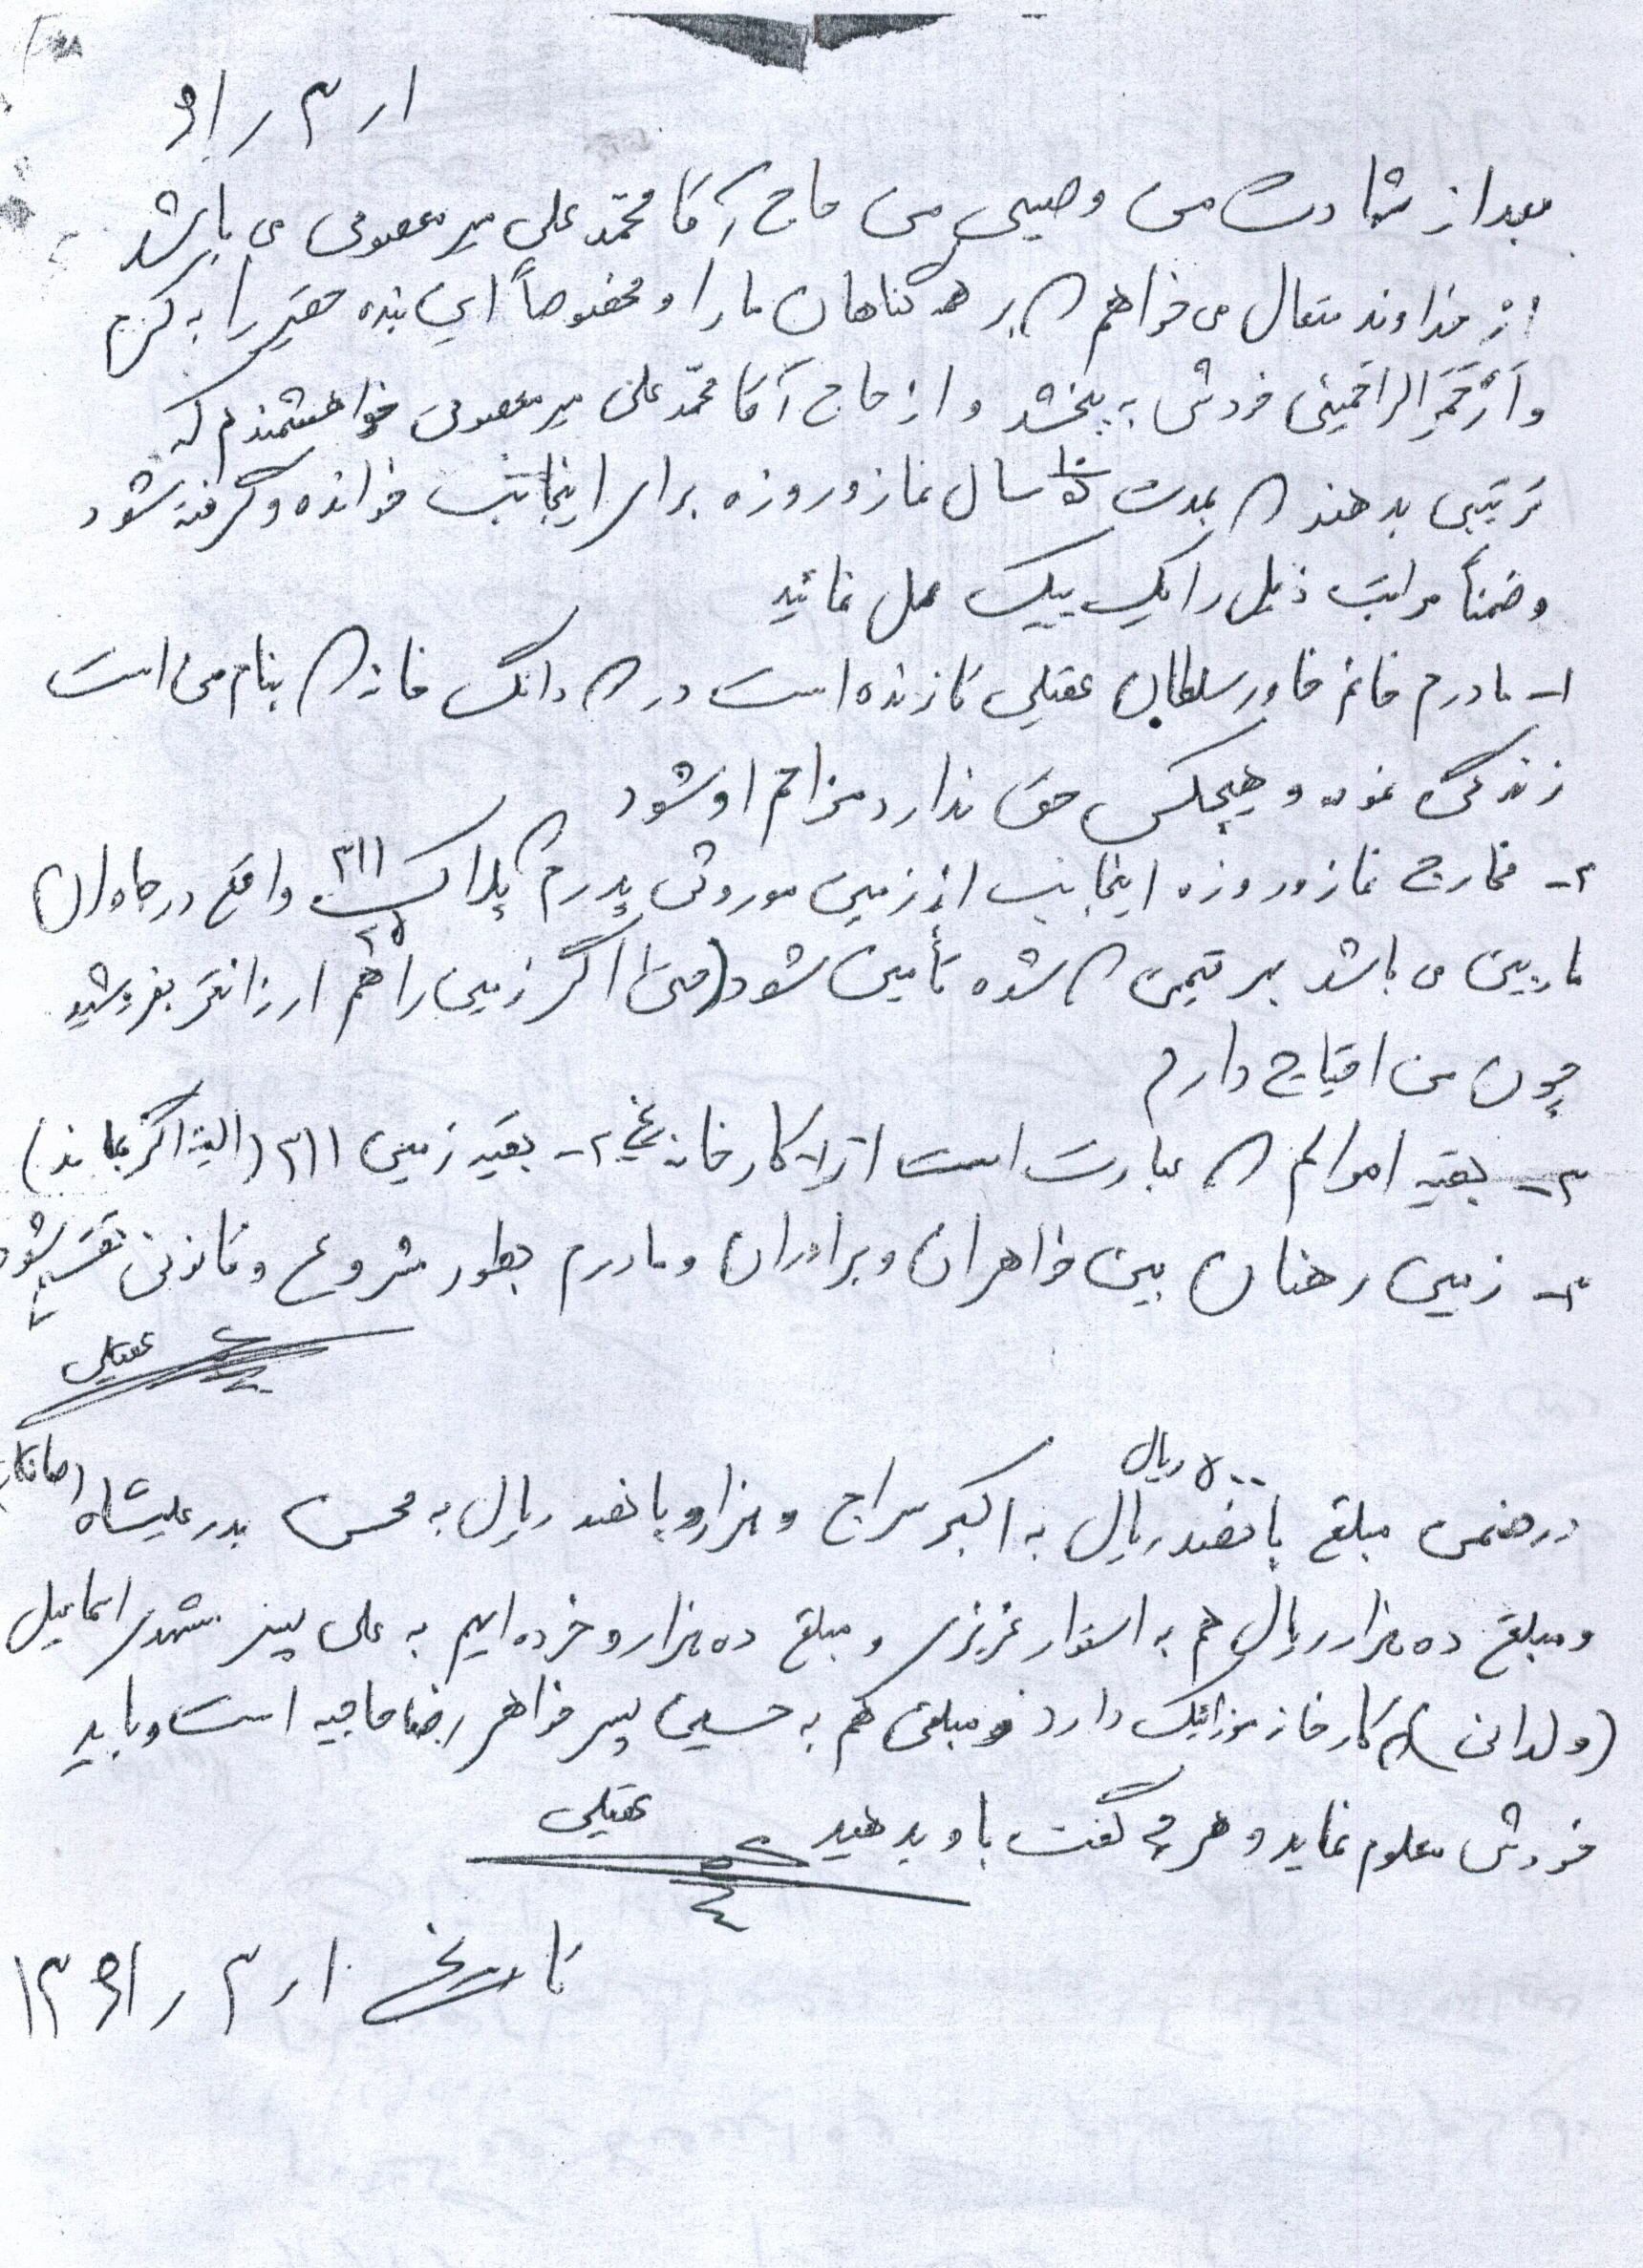 ۱ر۳ر۶۱
بعد از شهادت من وصیی من حاج آقا محمّد علی میر معصومی می باشد
از خداوند متعال می خواهم که همه گناهان ما را و مخصوصاً این بنده حقیر را به کرم
و اَرْحَمَ الراحمینی خودش به بخشد و از حاج آقا محمّد علی میر معصومی خواهشمندم که
ترتیبی بدهند که بمدت سال نماز و روزه برای اینجانب خوانده و گرفته شود
و ضمناً مراتب ذیل را یک بیک عمل نمائید
۱- مادرم خانم خاور سلطان عقیلی تا زنده است در دانگ خانه که بنام من است
زندگی نموده و هیچکس حق ندارد مزاحم او شود
۲- مخارج نماز و روزه اینجانب از زمین موروثی پدرم که پلاک ۳۱۱ واقع در
ماربین می باشد بهر قیمتی که شده تأمین شود (حتی اگر زمین را هم ارزانتر بفروشید
چون من احتیاج دارم
۳- بقیه اموالم که عبارت است از ۱- کارخانه ۲- بقیه زمین ۳۱۱ (البته اگر بماند)
۳- زمین رهنان بین خواهران و برادران و مادرم بطور مشروع و قانونی تقسیم شود
عقیلی
۵۰۰ ریال
در ضمن مبلغ پانصد ریال به اکبر سراج و هزار و پانصد ریال به محسن بدر علیشاه
و مبلغ ده هزار ریال هم به استوار عزیزی و مبلغ ده هزار و خرده ایم به علی پسر مشهدی اسماعیل
(ولدانی) که کارخانه موزائیک دارد و مبلغی هم به حسین پسر خواهر رضا حاجیه است و باید
خودش معلوم نماید و هر چه گفت باو بدهید
عقیلی
تاریخ ۱ر۳ر۱۳۶۱